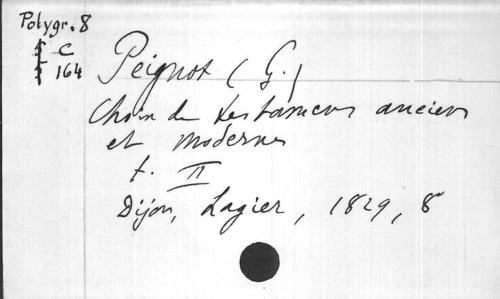 Polygr. 8
C
164
Peignot (G.)
Choix de testamens anciens
et modernes
t. II
Dijon, Lagier, 1829, 8°